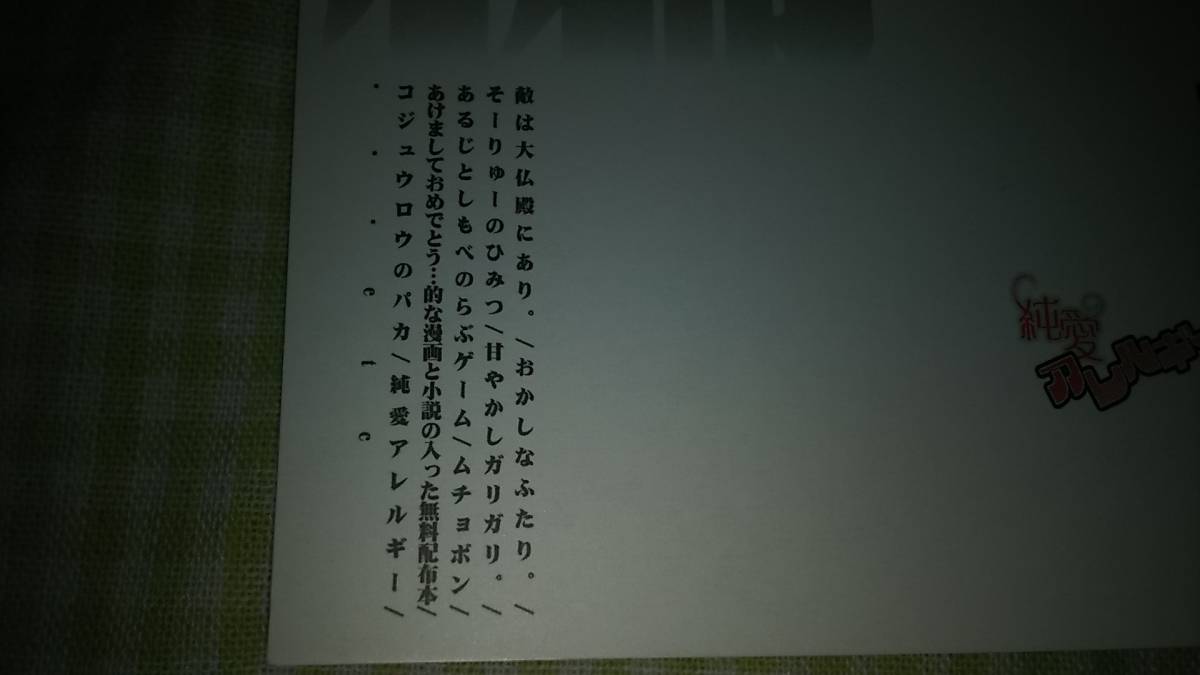 敵は大仏殿にあり。/おかしなふたり。/
そーりゅーのひみつ/甘やかしガリガリ。/
あるじとしもべのらぶゲーム/ムチョボン/
あけましておめでとう…的な漫画と小説の入った無料配布本/
コジュウロウのバカ/純愛アレルギー/
・・・etc
純愛
アレルギー